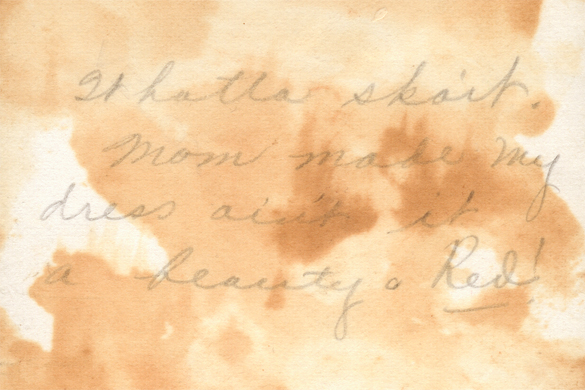 Whatta skōit.
Mom made my
dress ain't it
a beauty. Red!